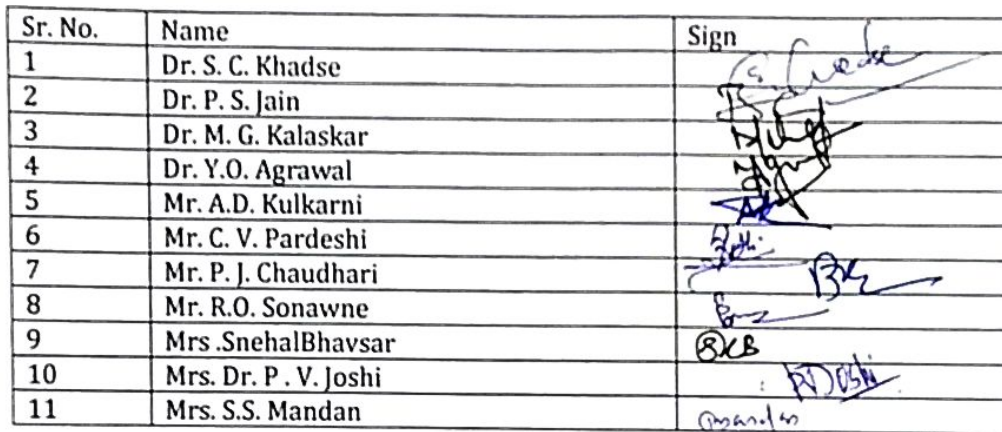 Sr. No. Name Sign
1 Dr. S. C. Khadse
2 Dr. P. S. Jain
3 Dr. M. G. Kalaskar
4 Dr. Y.O. Agrawal
5 Mr. A.D. Kulkarni
6 Mr. C. V. Pardeshi
7 Mr. P. J. Chaudhari
8 Mr. R.O. Sonawne
9 Mrs .SnehalBhavsar
10 Mrs. Dr. P . V. Joshi
11 Mrs. S.S. Mandan